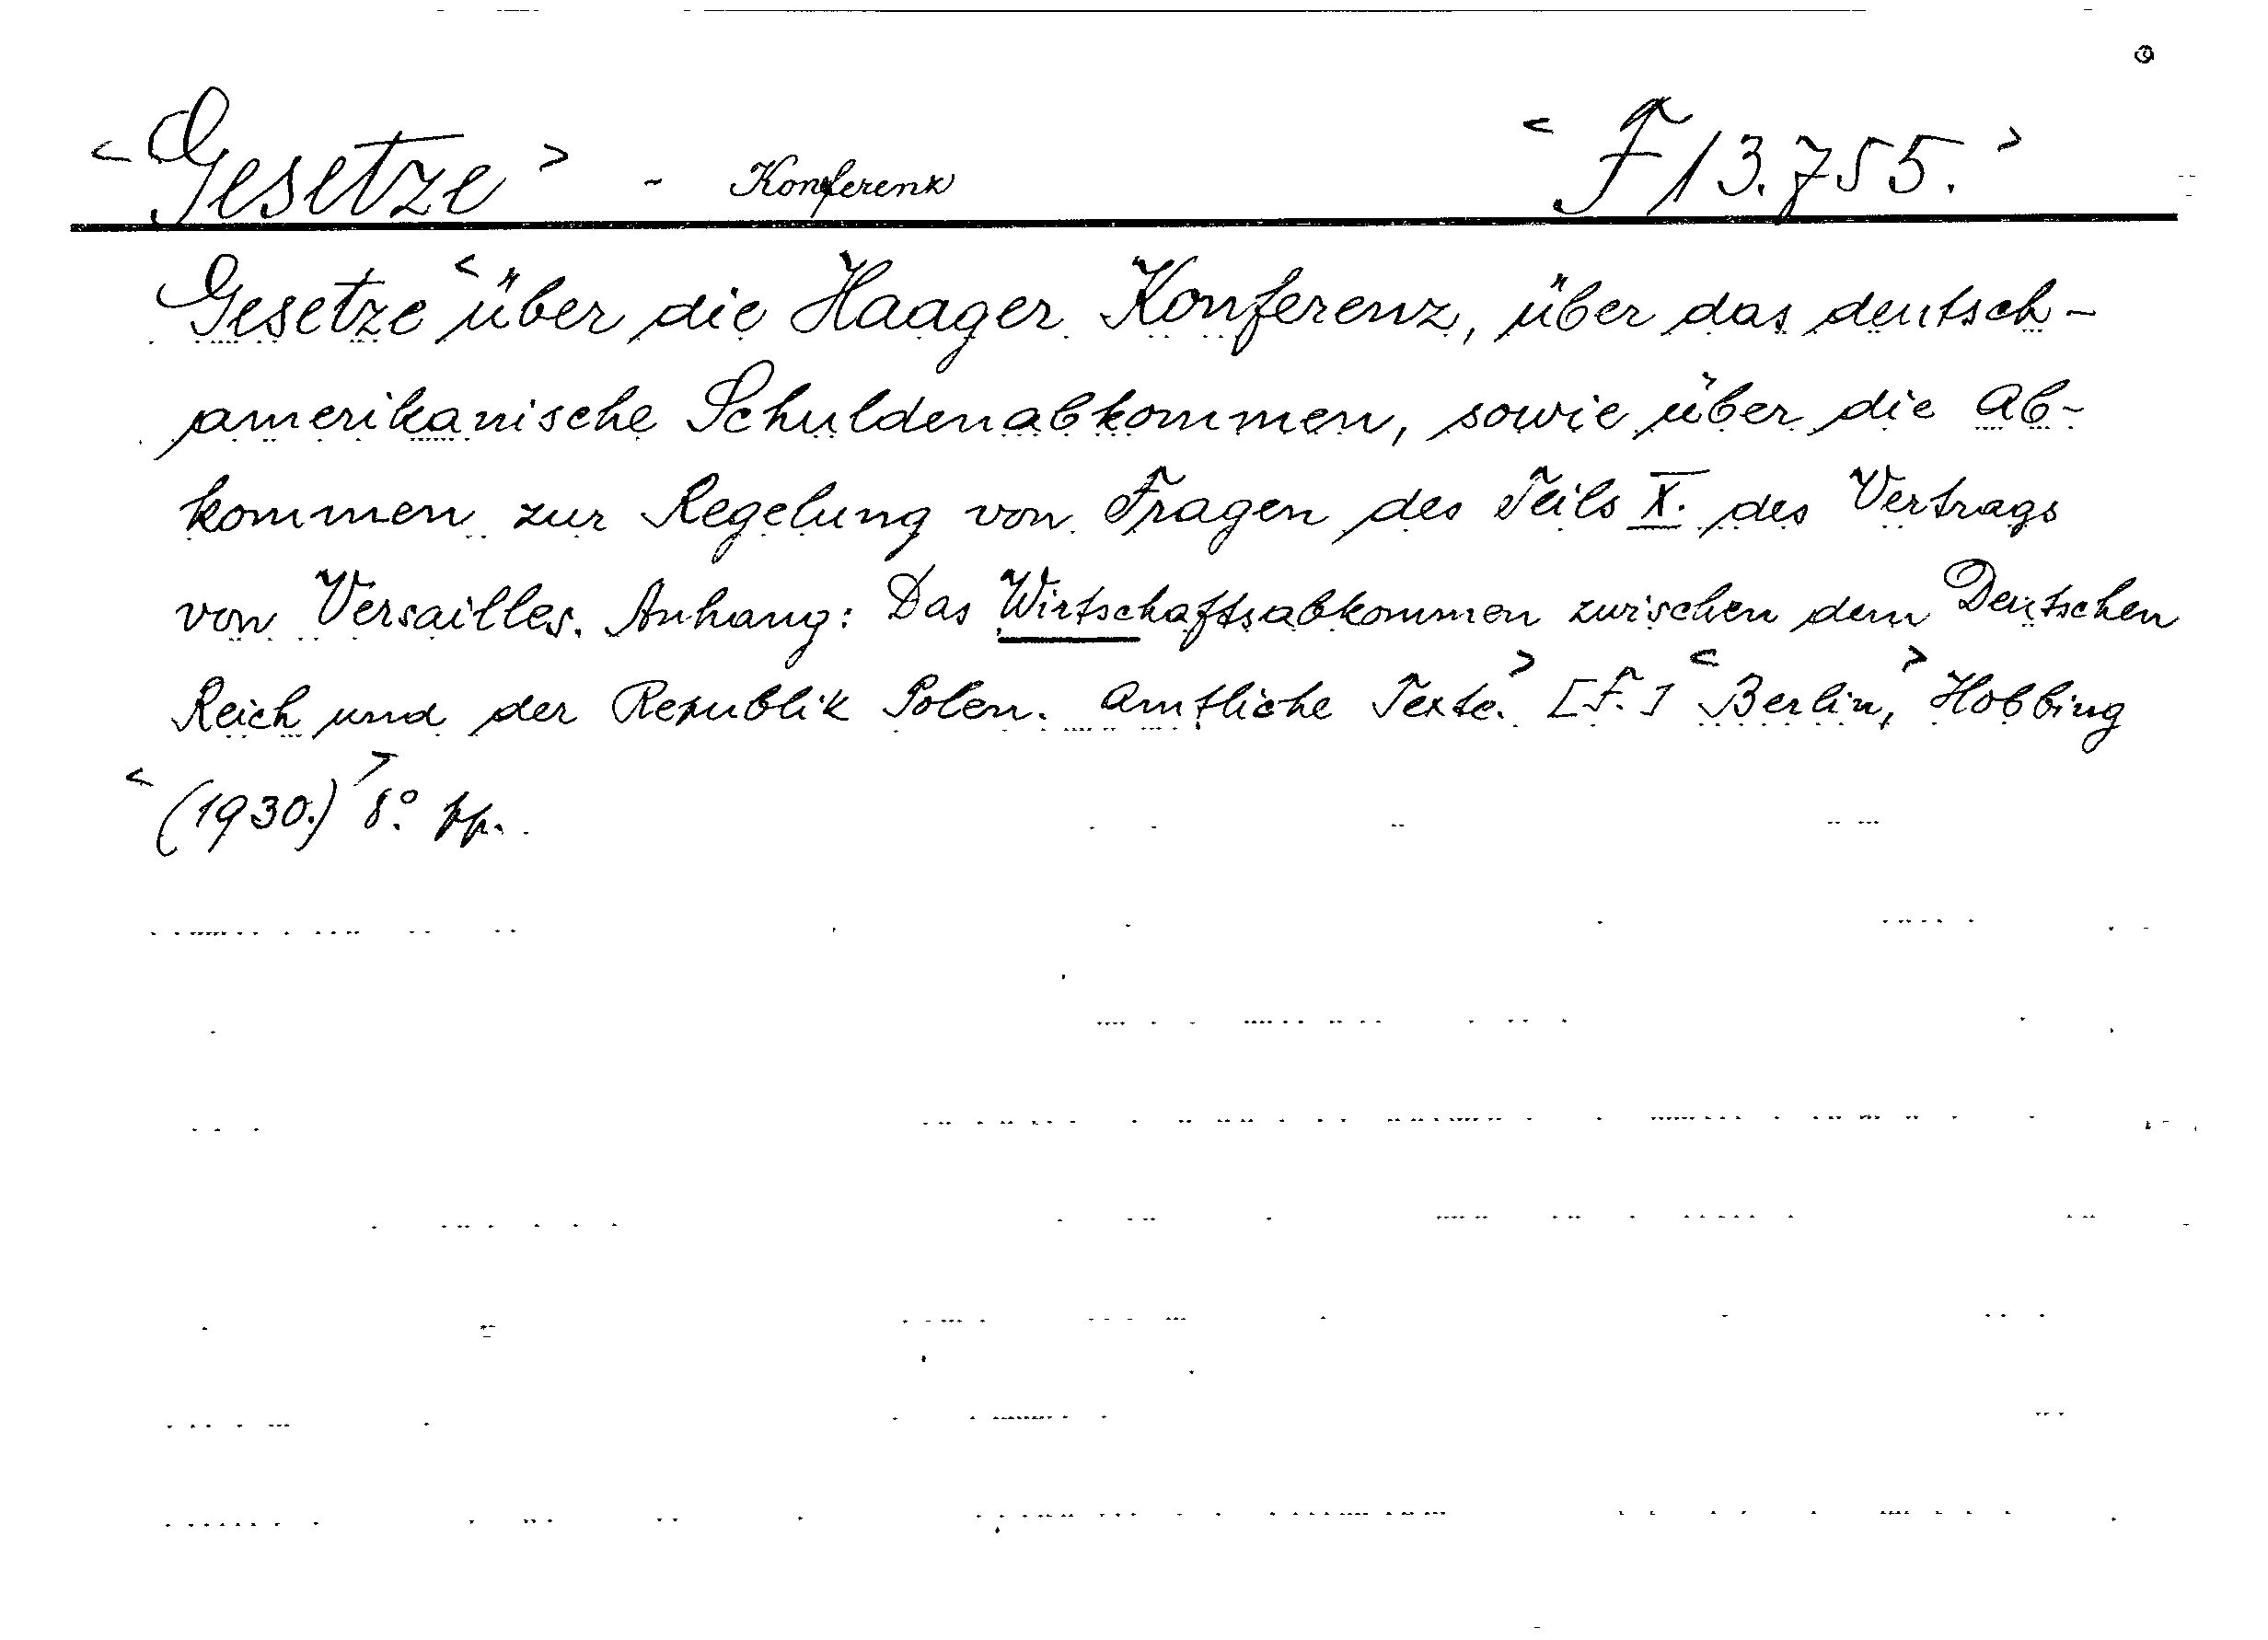 < Gesetze > - Konferenz < F 13.755. >
Gesetze < über die Haager Konferenz, über das deutsch-
amerikanische Schuldenabkommen, sowie über die Ab-
kommen zur Regelung von Fragen des Teils X. des Vertrags
von Versailles. Anhang: Das Wirtschaftsabkommen zwischen dem Deutschen
Reich und der Republik Polen. Amtliche Texte. > [F.] < Berlin, > Hobbing
< (1930.) > 8°.